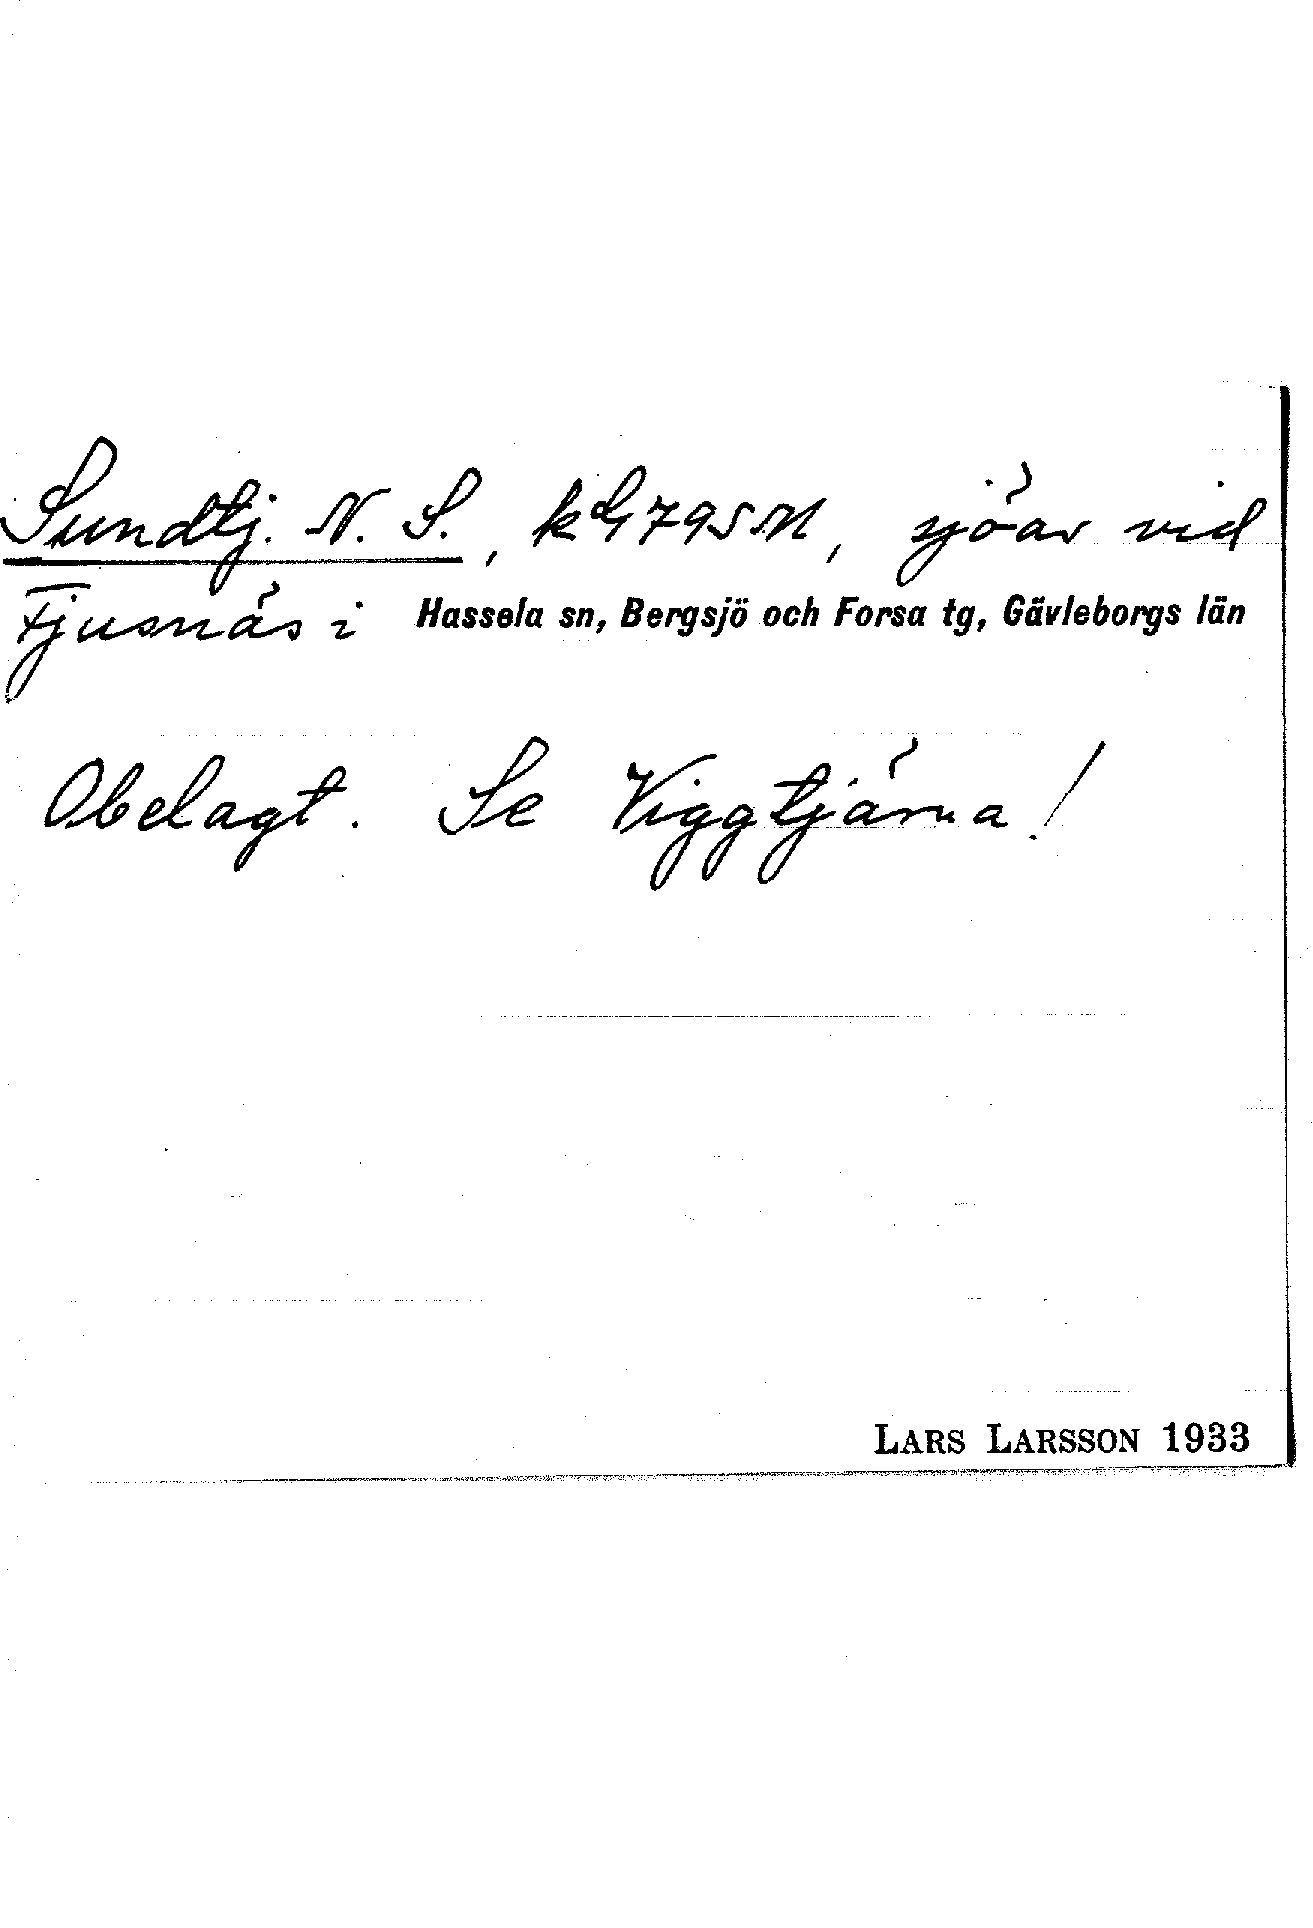 Sundtj. N. S., kG795M, sjöar vid
Fjusnäs i Hassela sn, Bergsjö och Forsa tg, Gävleborgs län
Obelagt. Se Viggtjärna!
LARS LARSSON 1933